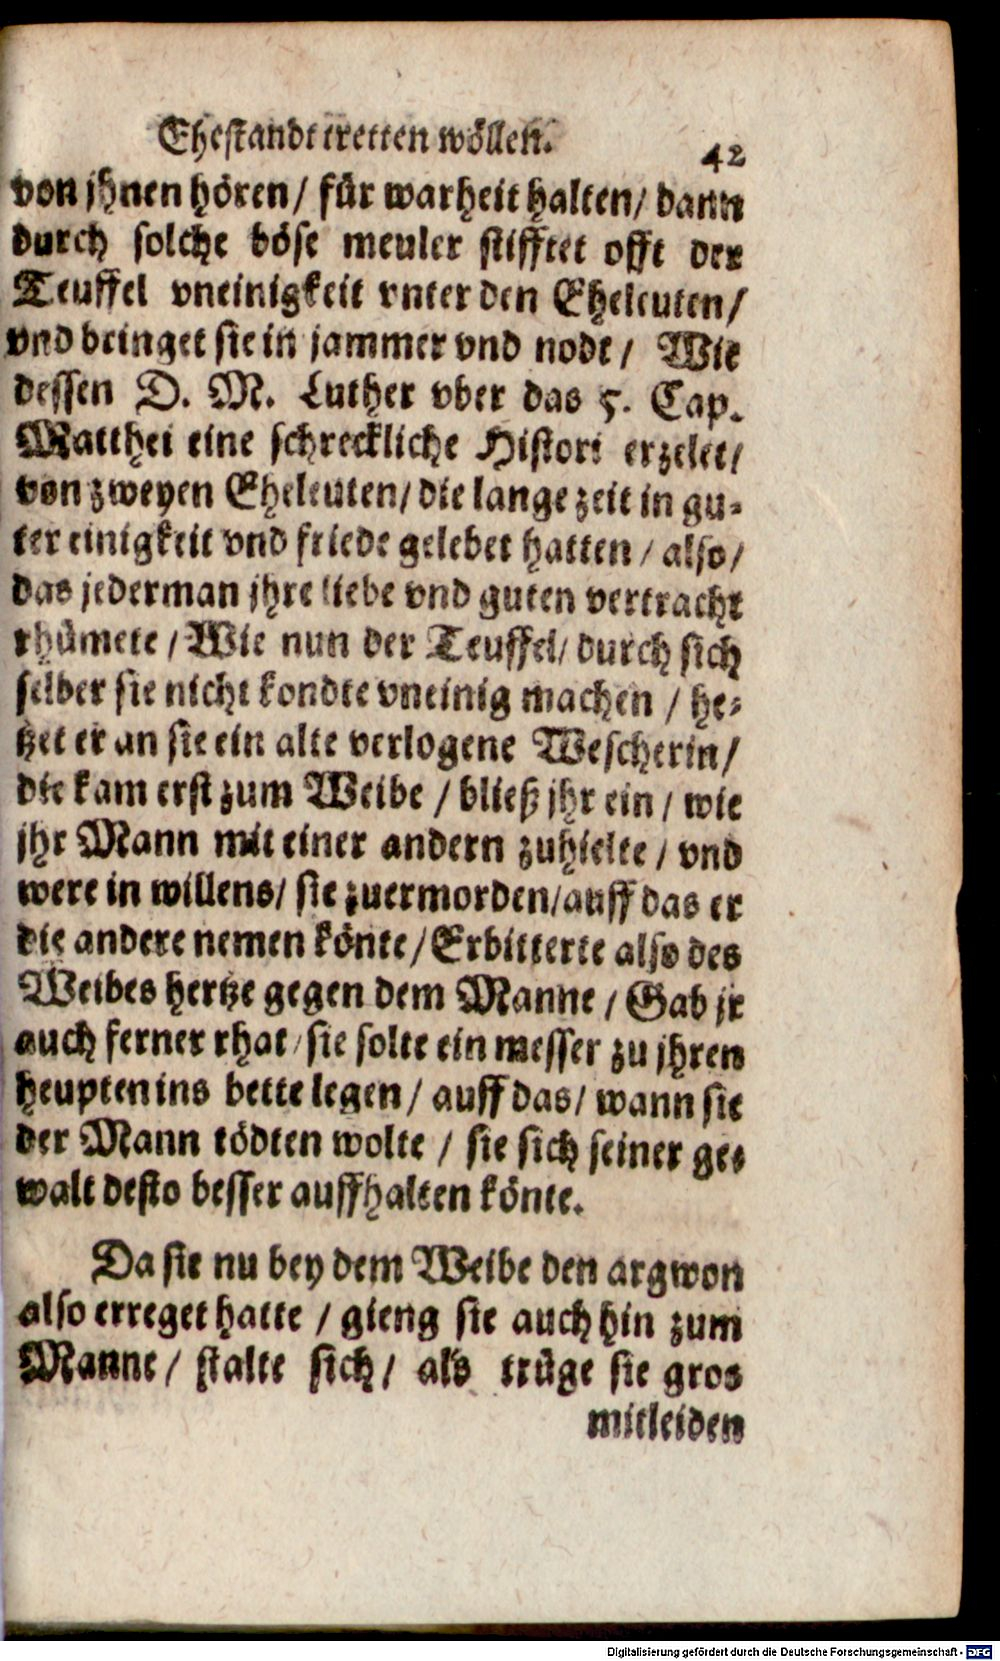 Ehestandt tretten wöllen.
42
von jhnen hören / für warheit halten / dann
durch solche böse meuler stifftet offt der
Teuffel vneinigkeit vnter den Eheleuten /
vnd bringet sie in jammer vnd nodt / Wie
dessen D. M. Luther vber das 5. Cap.
Matthei eine schreckliche Histori erzelet /
von zweyen Eheleuten / die lange zeit in gu-
ter einigkeit vnd friede gelebet hatten / also /
das jederman jhre liebe vnd guten vertracht
rhümete / Wie nun der Teuffel / durch sich
selber sie nicht kondte vneinig machen / he-
tzet er an sie ein alte verlogene Wescherin /
die kam erst zum Weibe / bließ jhr ein / wie
jhr Mann mit einer andern zuhielte / vnd
were in willens / sie zuermorden / auff das er
die andere nemen könte / Erbitterte also des
Weibes hertze gegen dem Manne / Gab jr
auch ferner rhat / sie solte ein messer zu jhren
heupten ins bette legen / auff das / wann sie
der Mann tödten wolte / sie sich seiner ge-
walt desto besser auffhalten könte.
Da sie nu bey dem Weibe den argwon
also erreget hatte / gieng sie auch hin zum
Manne / stalte sich / als trüge sie gros
mitleiden
Digitalisierung gefördert durch die Deutsche Forschungsgemeinschaft - DFG